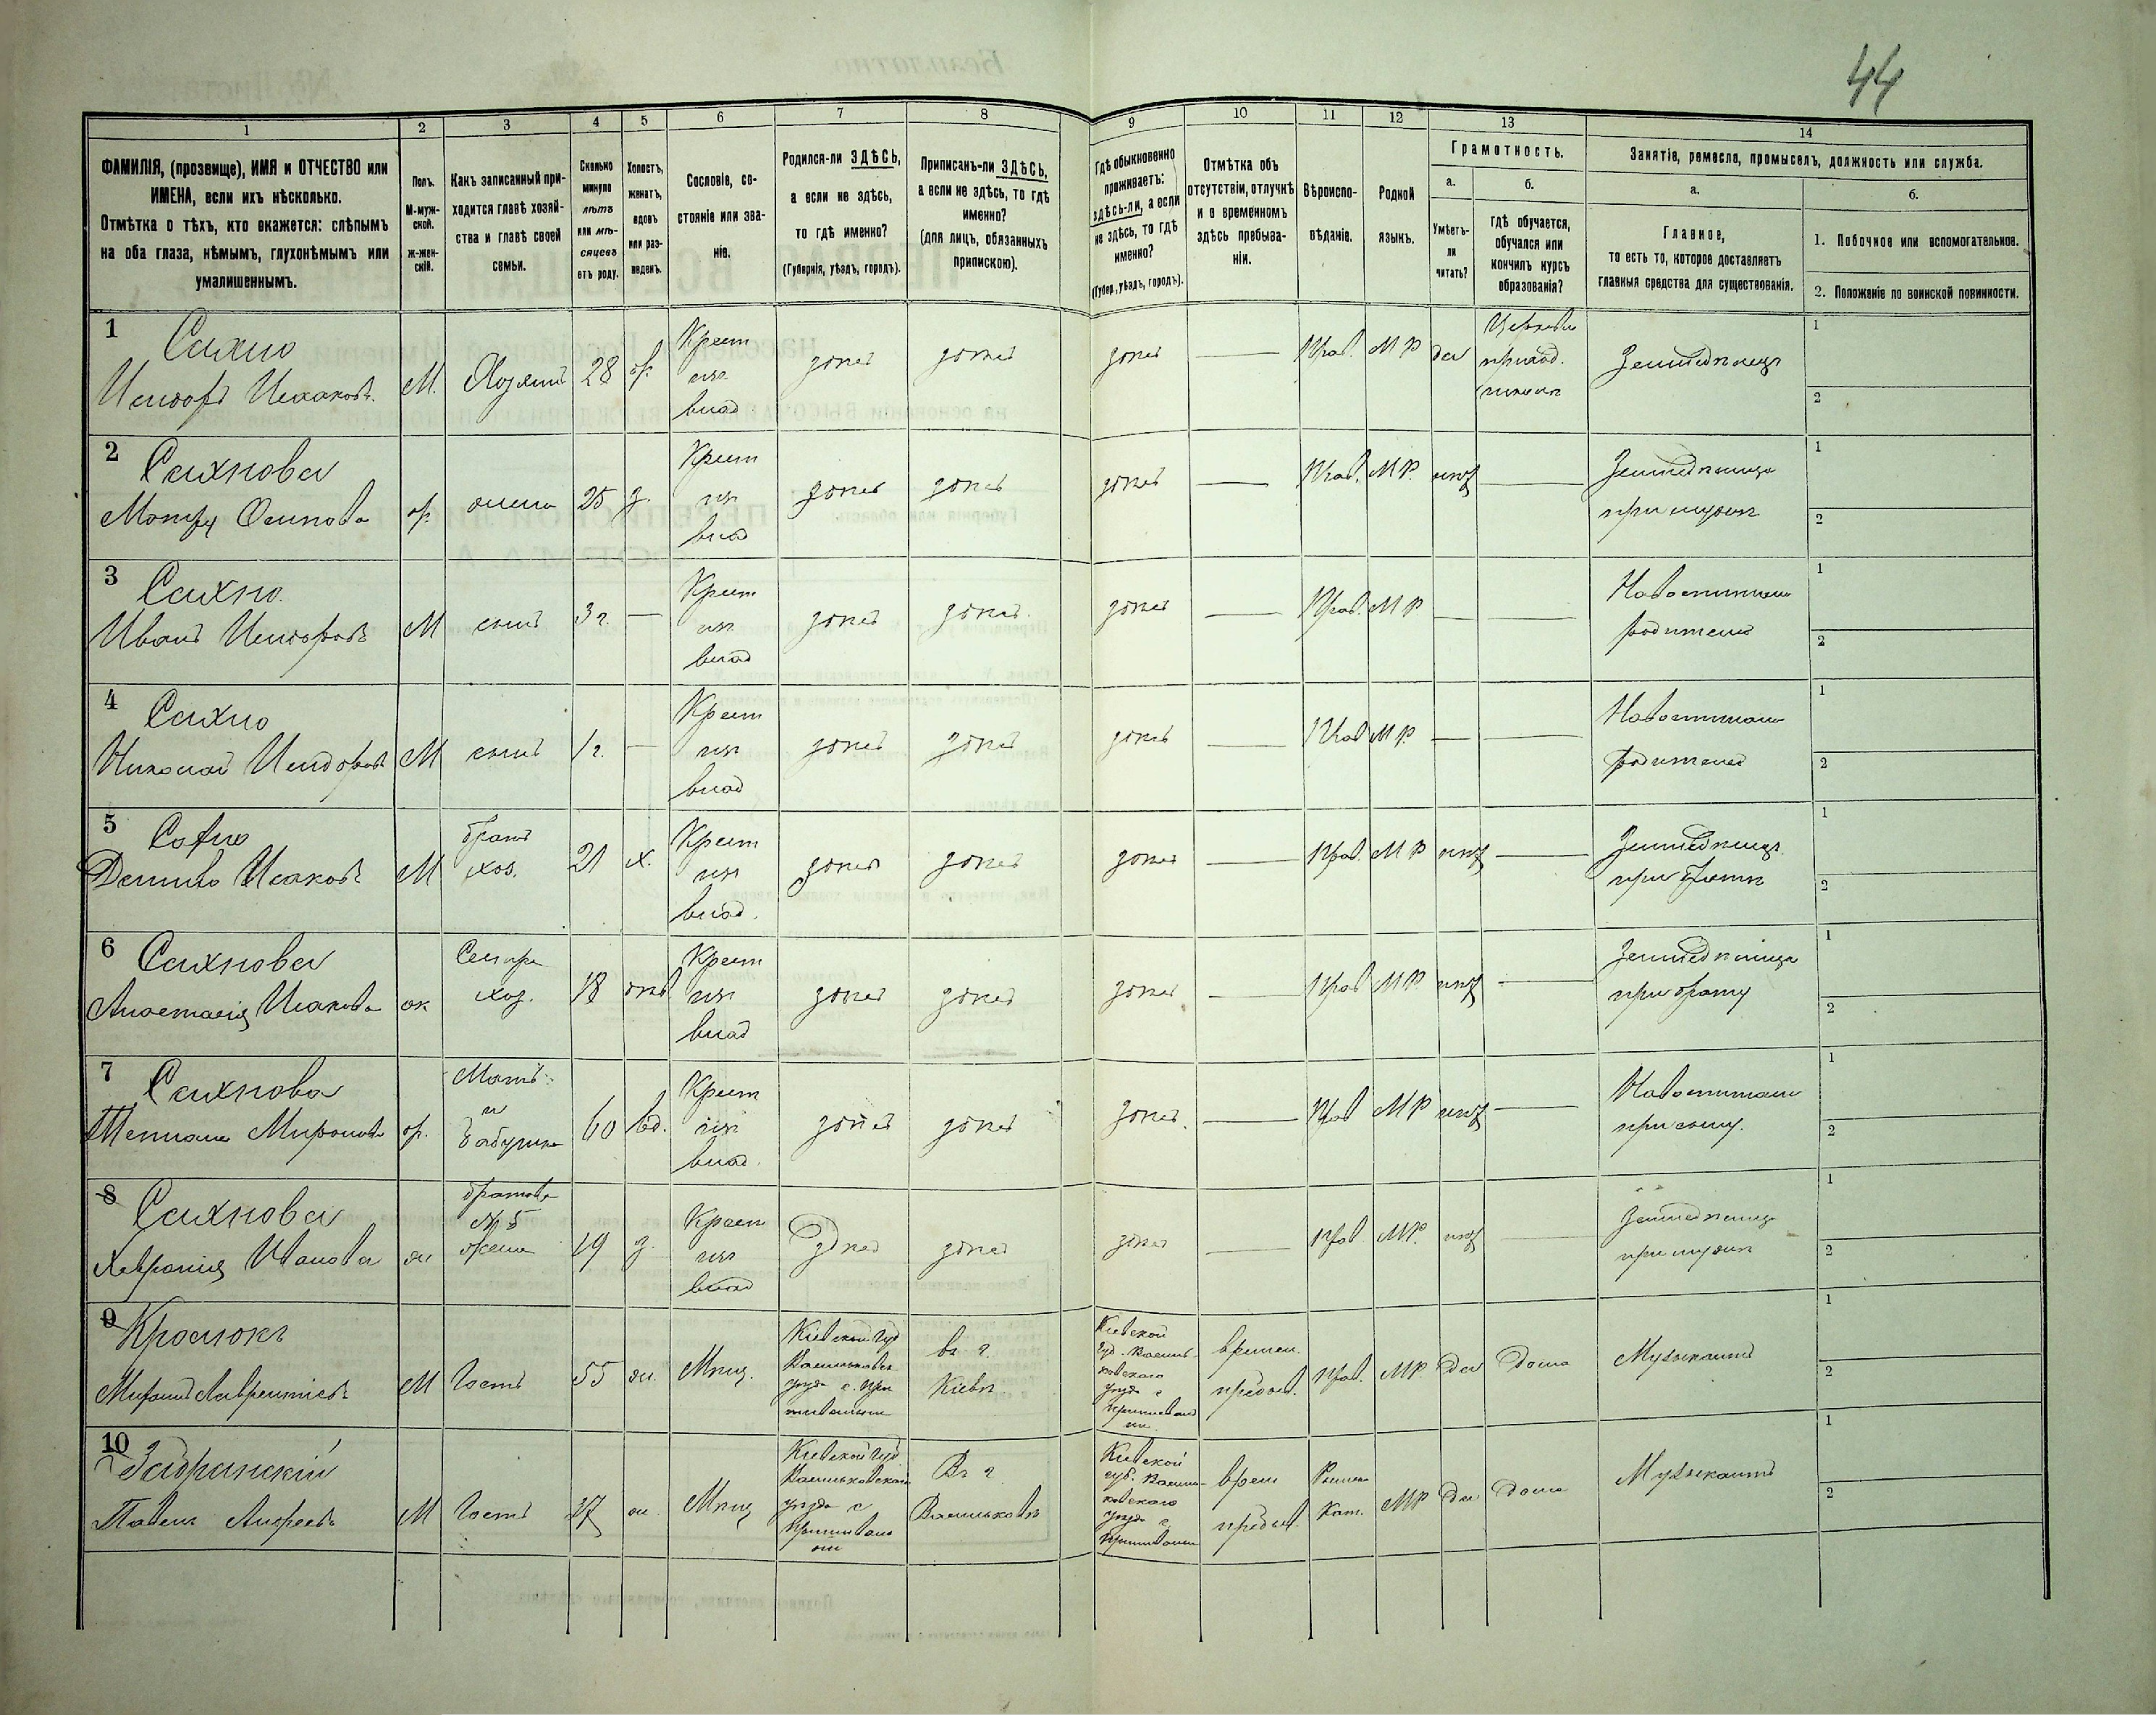 44
1 2 3 4 5 6 7 8 9 10 11 12 13 14
ФАМИЛІЯ, (прозвище), ИМЯ и ОТЧЕСТВО или
ИМЕНА, если ихъ нѣсколько.
Отмѣтка о тѣхъ, кто окажется: слѣпымъ
на оба глаза, нѣмымъ, глухонѣмымъ или
умалишеннымъ.
Полъ.
М-муж-
ской.
ж-жен-
скій.
Какъ записанный при-
ходится главѣ хозяй-
ства и главѣ своей
семьи.
Сколько
минуло
лѣтъ
или мѣ-
сяцевъ
отъ роду.
Холостъ,
женатъ,
вдовъ
или раз-
веденъ.
Сословіе, со-
стояніе или зва-
ніе.
Родился-ли ЗДѢСЬ,
а если не здѣсь,
то гдѣ именно?
(Губернія, уѣздъ, городъ).
Приписанъ-ли ЗДѢСЬ,
а если не здѣсь, то гдѣ
именно?
(для лицъ, обязанныхъ
припискою).
Гдѣ обыкновенно
проживаетъ:
здѣсь-ли, а если
не здѣсь, то гдѣ
именно?
(Губер., уѣздъ, городъ).
Отмѣтка объ
отсутствіи, отлучкѣ
и о временномъ
здѣсь пребыва-
ніи.
Вѣроиспо-
вѣданіе.
Родной
языкъ.
Грамотность.
а.
Умѣетъ-
ли
читать?
б.
Гдѣ обучается,
обучался или
кончилъ курсъ
образованія?
Занятіе, ремесло, промыселъ, должность или служба.
а.
Главное,
то есть то, которое доставляетъ
главныя средства для существованія.
б.
1. Побочное или вспомогательное.
2. Положеніе по воинской повинности.
1 Сахно
Исидоръ Исааковъ. М. Хозяинъ 28 ж.
Крест
изъ
влад
здѣсь здѣсь здѣсь — Прав. МР да
приход.
Земледѣлецъ
1
2
2 Сахнова
Осипова ж. жена 25 з.
Крест
изъ
влад
здѣсь здѣсь здѣсь — Прав. МР. нѣтъ —
Земледѣлица
при мужѣ
1
2
3 Сахно
Иванъ Исидоровъ М сынъ 3 г. —
Крест
изъ
влад
здѣсь здѣсь здѣсь — Прав. МР — —
родителей
1
2
4 Сахно
Николай Исидоровъ М сынъ 1 г. —
Крест
изъ
влад
здѣсь здѣсь здѣсь — Прав МР. — —
родителей
1
2
5 Сахно
Исаковъ М
братъ
хоз. 21 х.
Крест
изъ
влад.
здѣсь здѣсь здѣсь — Прав. МР нѣтъ —
Земледѣлецъ
при братѣ
1
2
6 Сахнова
Анастасія Исакова ж
Сестра
хоз. 18
Крест
изъ
влад
здѣсь здѣсь здѣсь — Прав МР нѣтъ —
Земледѣлица
при брату
1
2
7 Сахнова
Миронова ж.
Мать
и
бабушка 60 вд.
Крест
изъ
влад.
здѣсь здѣсь здѣсь. — Прав МР нѣтъ —
при сыну.
1
2
8 Сахнова
Хавронія Иванова ж
братова
№ 5
жена 19 з.
Крест
изъ
влад
здѣсь здѣсь здѣсь — Прав МР. нѣтъ —
Земледѣлица
при мужѣ
1
2
9
Лаврентіевъ М Гость 55 ж. Мѣщ.
Кіевской губ
уѣзда с.
въ г.
Кіевѣ
Кіевской
губ.
уѣзда с
времен.
Прав. МР. да Дома Музыкантъ
1
2
10
Павелъ Андреевъ М Гость 37 ж. Мѣщ
Кіевской губ.
Васильковскаго
уѣзда с
Въ г
Васильковѣ
Кіевской
губ.
уѣзда с
врем
Кат. МР да Дома Музыкантъ
1
2